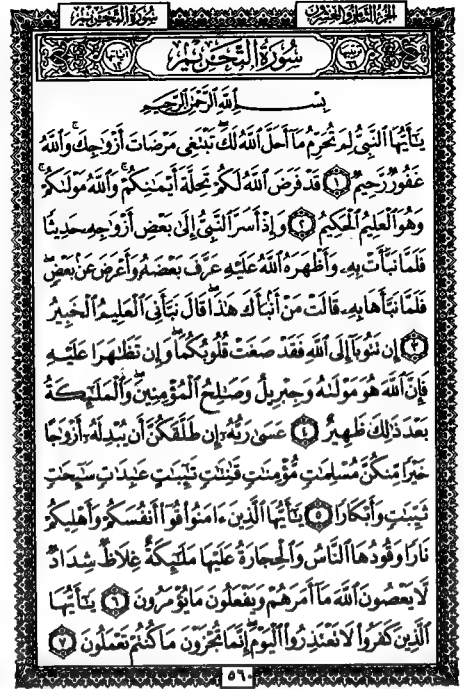 سُورَةُ التَّحْرِيمِ
الجُزْءُ الثَّامِنُ وَالعِشْرُونَ
سُورَةُ التَّحْرِيمِ
بِسْمِ اللَّهِ الرَّحْمَٰنِ الرَّحِيمِ
يَٰٓأَيُّهَا ٱلنَّبِيُّ لِمَ تُحَرِّمُ مَآ أَحَلَّ ٱللَّهُ لَكَۖ تَبْتَغِي مَرْضَاتَ أَزْوَٰجِكَۚ وَٱللَّهُ
غَفُورٌ رَّحِيمٌ ١ قَدْ فَرَضَ ٱللَّهُ لَكُمْ تَحِلَّةَ أَيْمَٰنِكُمْۚ وَٱللَّهُ مَوْلَىٰكُمْۖ
وَهُوَ ٱلْعَلِيمُ ٱلْحَكِيمُ ٢ وَإِذْ أَسَرَّ ٱلنَّبِيُّ إِلَىٰ بَعْضِ أَزْوَٰجِهِۦ حَدِيثًا
فَلَمَّا نَبَّأَتْ بِهِۦ وَأَظْهَرَهُ ٱللَّهُ عَلَيْهِ عَرَّفَ بَعْضَهُۥ وَأَعْرَضَ عَنۢ بَعْضٍۖ
فَلَمَّا نَبَّأَهَا بِهِۦ قَالَتْ مَنْ أَنۢبَأَكَ هَٰذَاۖ قَالَ نَبَّأَنِيَ ٱلْعَلِيمُ ٱلْخَبِيرُ
٣ إِن تَتُوبَآ إِلَى ٱللَّهِ فَقَدْ صَغَتْ قُلُوبُكُمَاۖ وَإِن تَظَٰهَرَا عَلَيْهِ
فَإِنَّ ٱللَّهَ هُوَ مَوْلَىٰهُ وَجِبْرِيلُ وَصَٰلِحُ ٱلْمُؤْمِنِينَۖ وَٱلْمَلَٰٓئِكَةُ
بَعْدَ ذَٰلِكَ ظَهِيرٌ ٤ عَسَىٰ رَبُّهُۥٓ إِن طَلَّقَكُنَّ أَن يُبْدِلَهُۥٓ أَزْوَٰجًا
خَيْرًا مِّنكُنَّ مُسْلِمَٰتٍ مُّؤْمِنَٰتٍ قَٰنِتَٰتٍ تَٰٓئِبَٰتٍ عَٰبِدَٰتٍ سَٰٓئِحَٰتٍ
ثَيِّبَٰتٍ وَأَبْكَارًا ٥ يَٰٓأَيُّهَا ٱلَّذِينَ ءَامَنُوا۟ قُوٓا۟ أَنفُسَكُمْ وَأَهْلِيكُمْ
نَارًا وَقُودُهَا ٱلنَّاسُ وَٱلْحِجَارَةُ عَلَيْهَا مَلَٰٓئِكَةٌ غِلَاظٌ شِدَادٌ
لَّا يَعْصُونَ ٱللَّهَ مَآ أَمَرَهُمْ وَيَفْعَلُونَ مَا يُؤْمَرُونَ ٦ يَٰٓأَيُّهَا
ٱلَّذِينَ كَفَرُوا۟ لَا تَعْتَذِرُوا۟ ٱلْيَوْمَۖ إِنَّمَا تُجْزَوْنَ مَا كُنتُمْ تَعْمَلُونَ ٧
٥٦٠